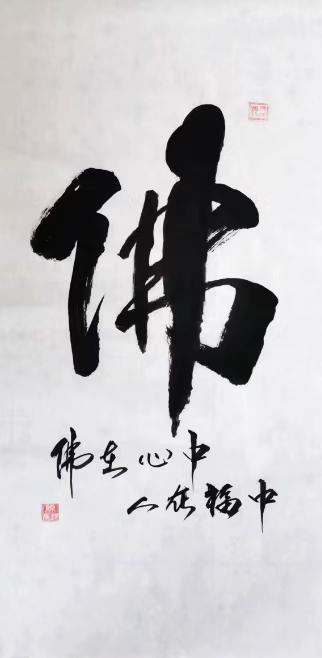 佛
佛在心中
人在福中